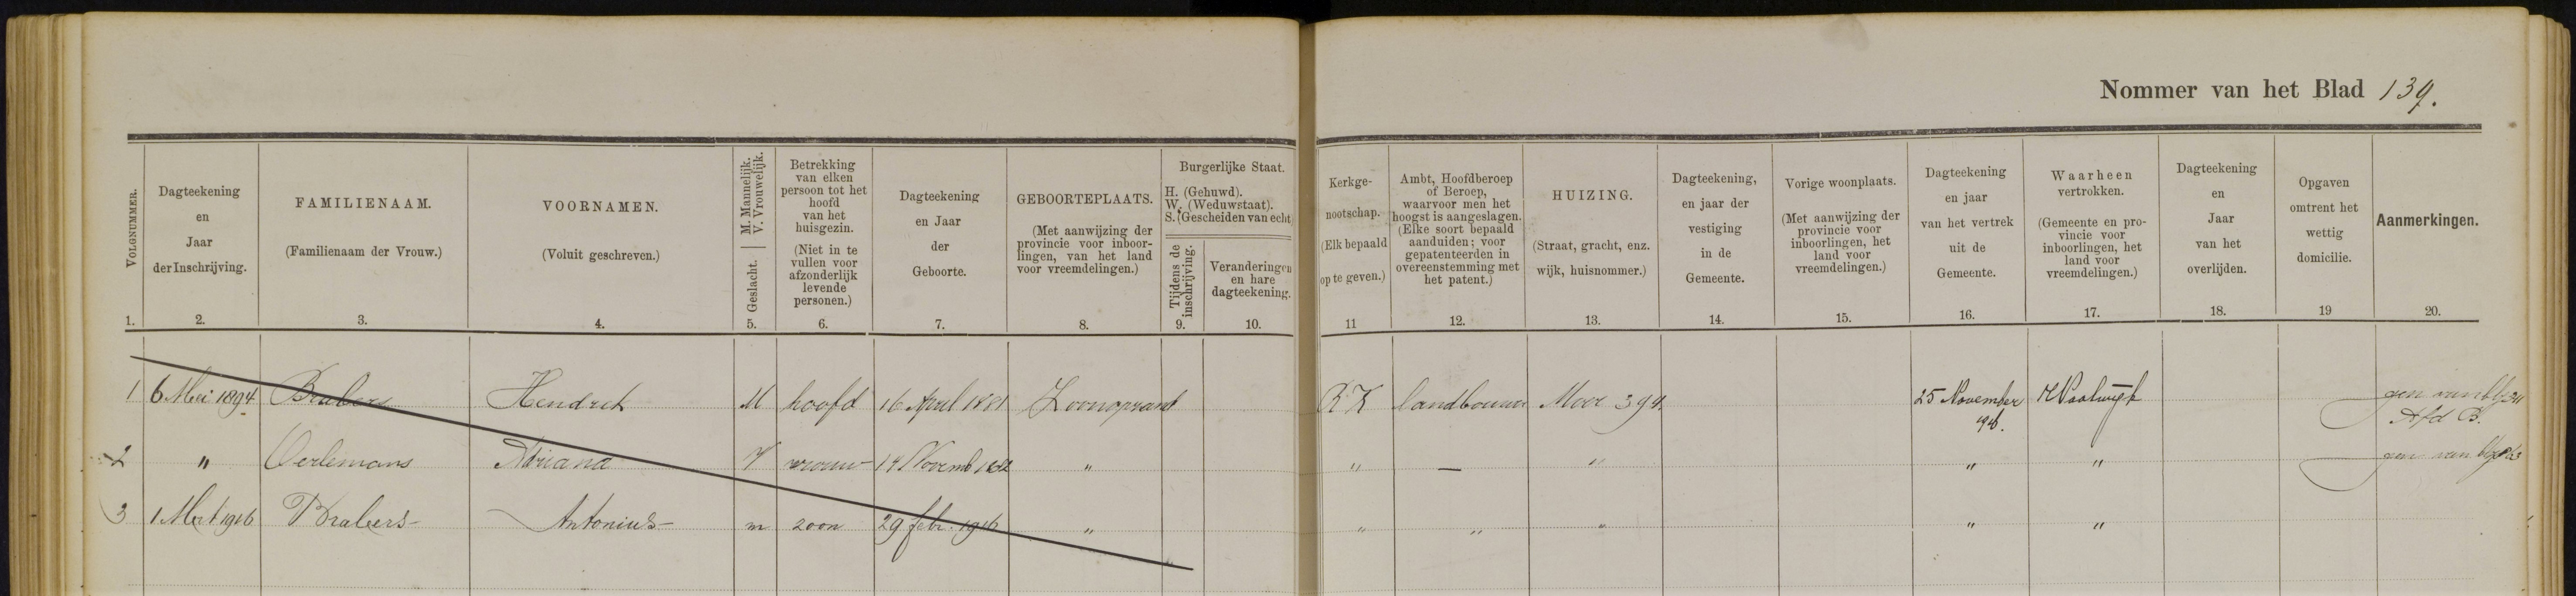 Nommer van het Blad 139.
VOLGNUMMER.
1.
Dagteekening
en
Jaar
der Inschrijving.
2.
FAMILIENAAM.
(Familienaam der Vrouw.)
3.
VOORNAMEN.
(Voluit geschreven.)
4.
Geslacht. | M. Mannelijk.
V. Vrouwelijk.
5.
Betrekking
van elken
persoon tot het
hoofd
van het
huisgezin.
(Niet in te
vullen voor
afzonderlijk
levende
personen.)
6.
Dagteekening
en Jaar
der
Geboorte.
7.
GEBOORTEPLAATS.
(Met aanwijzing der
provincie voor inboor-
lingen, van het land
voor vreemdelingen.)
8.
Burgerlijke Staat.
H. (Gehuwd).
W. (Weduwstaat).
S. (Gescheiden van echt
Tijdens de
inschrijving.
9.
Veranderingen
en hare
dagteekening.
10.
Kerkge-
nootschap.
(Elk bepaald
op te geven.)
11
Ambt, Hoofdberoep
of Beroep,
waarvoor men het
hoogst is aangeslagen.
(Elke soort bepaald
aanduiden; voor
gepatenteerden in
overeenstemming met
het patent.)
12.
HUIZING.
(Straat, gracht, enz.
wijk, huisnommer.)
13.
Dagteekening,
en jaar der
vestiging
in de
Gemeente.
14.
Vorige woonplaats.
(Met aanwijzing der
provincie voor
inboorlingen, het
land voor
vreemdelingen.)
15.
Dagteekening
en jaar
van het vertrek
uit de
Gemeente.
16.
Waarheen
vertrokken.
(Gemeente en pro-
vincie voor
inboorlingen, het
land voor
vreemdelingen.)
17.
Dagteekening
en
Jaar
van het
overlijden.
18.
Opgaven
omtrent het
wettig
domicilie.
19
Aanmerkingen.
20.
1 6 Mei 1894 Brabers Hendrik M hoofd 16 April 1881 Loonopzand R K landbouwer Moer 394 25 November Waalwijk gen van
Afd B.
2 " Oerlemans Adriana V vrouw 14 Novemb 1882 " " — " " " gen van
3 1 Mrt 1916 Brabers Antonius m zoon 29 febr. 1916 " " " " " "